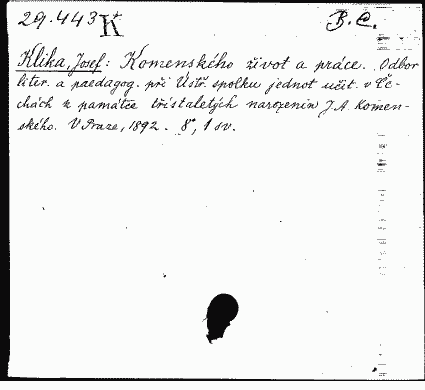 29.443 K B. C.
Klika, Josef: Komenského život a práce. Odbor
liter. a paedagog. při Ústř. spolku jednot učit. v Če-
chách k památce třístaletých narozenin J. A. Komen-
ského. V Praze, 1892. 8°, 1 sv.